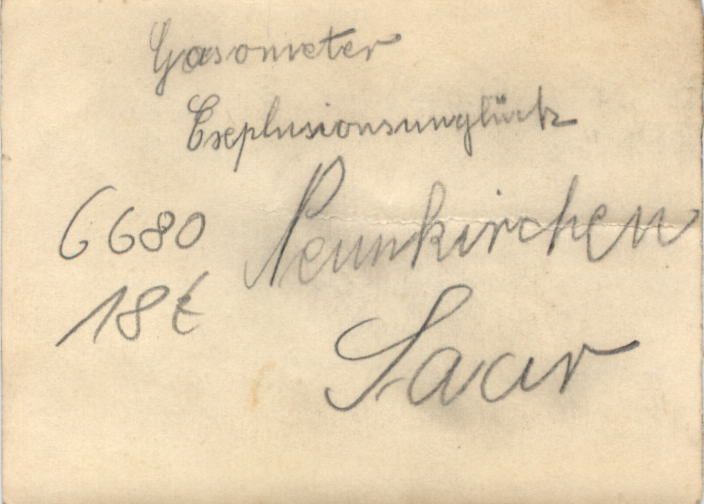 Gasometer
Exeplusionsunglück
6680
Neunkirchen
18€
Saar